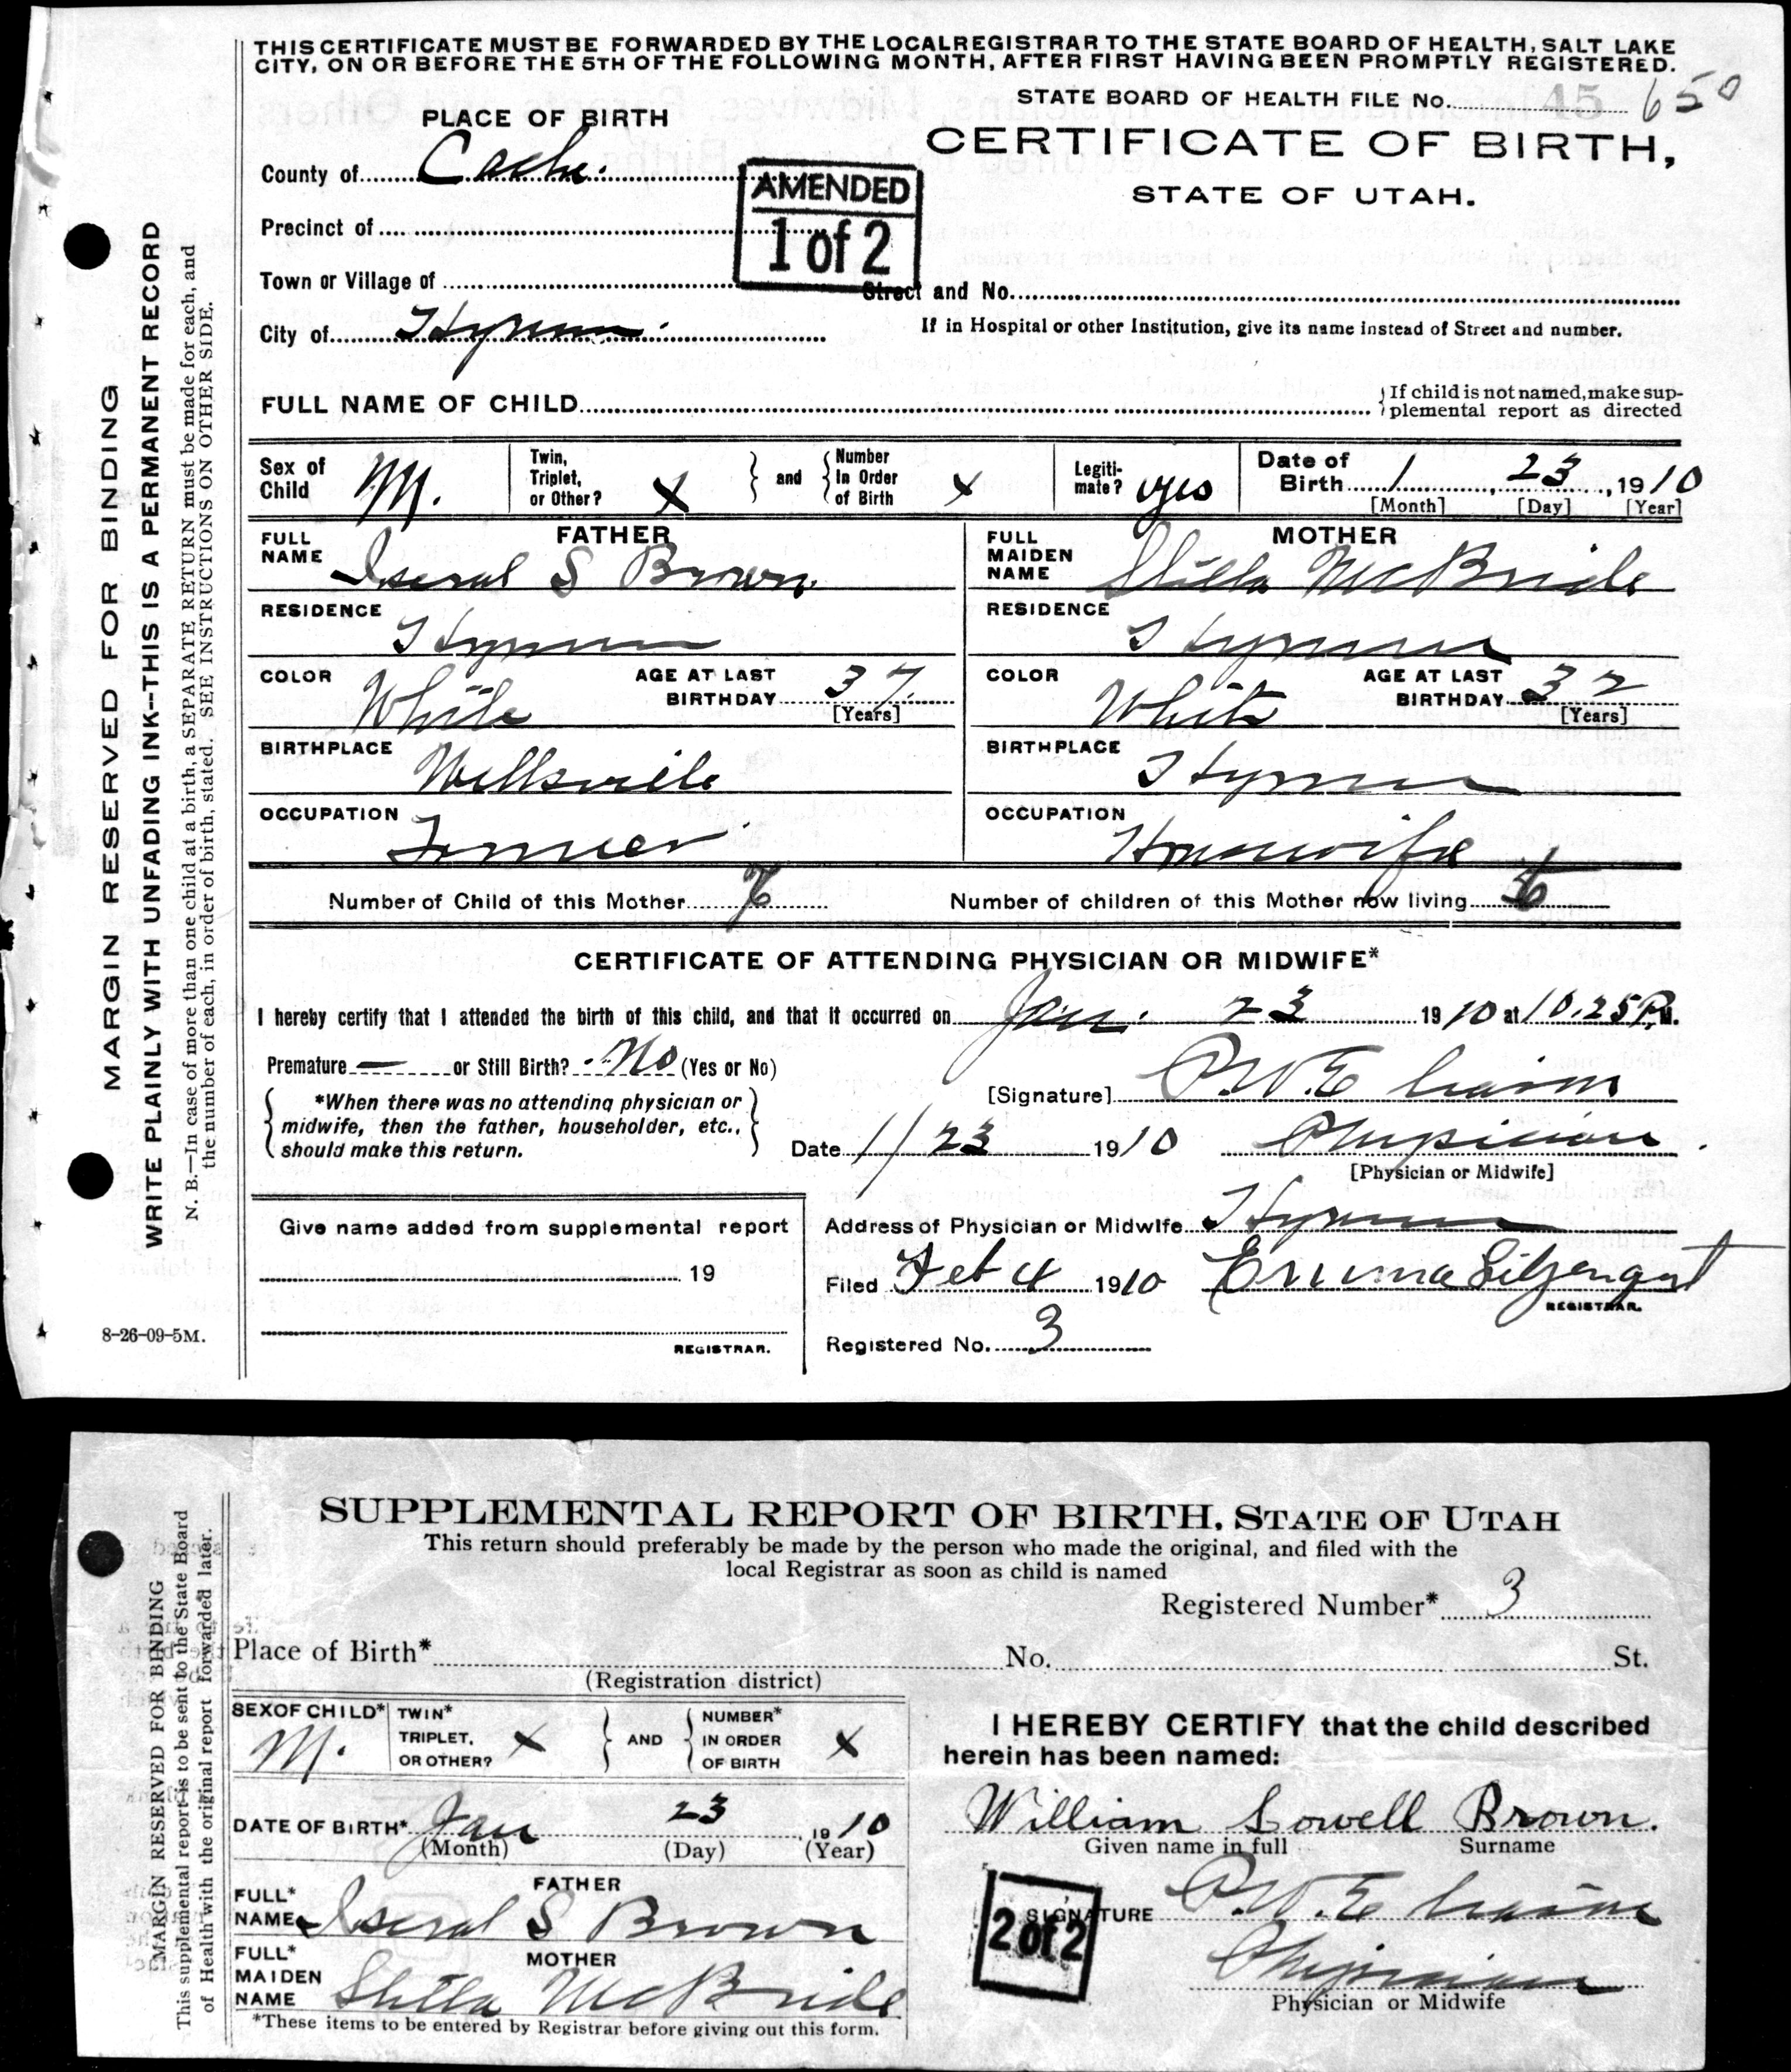 THIS CERTIFICATE MUST BE FORWARDED BY THE LOCAL REGISTRAR TO THE STATE BOARD OF HEALTH, SALT LAKE
CITY, ON OR BEFORE THE 5TH OF THE FOLLOWING MONTH, AFTER FIRST HAVING BEEN PROMPTLY REGISTERED.
STATE BOARD OF HEALTH FILE No. 45 650
PLACE OF BIRTH
CERTIFICATE OF BIRTH,
STATE OF UTAH.
County of Cache.
AMENDED
1 of 2
Precinct of
Town or Village of
Street and No.
City of Hyrum.
If in Hospital or other Institution, give its name instead of Street and number.
FULL NAME OF CHILD
If child is not named, make sup-
plemental report as directed
Sex of Child M.
Twin, Triplet, or Other? X
and
Number In Order of Birth X
Legiti-mate? yes
Date of Birth 1 23, 1910
[Month] [Day] [Year]
FATHER
FULL NAME Iseral S Brown
RESIDENCE Hyrum
COLOR White AGE AT LAST BIRTHDAY 37 [Years]
BIRTHPLACE Wellsville
OCCUPATION Farmer
MOTHER
FULL MAIDEN NAME Stella McBride
RESIDENCE Hyrum
COLOR White AGE AT LAST BIRTHDAY 32 [Years]
BIRTHPLACE Hyrum
OCCUPATION Housewife
Number of Child of this Mother
Number of children of this Mother now living
CERTIFICATE OF ATTENDING PHYSICIAN OR MIDWIFE*
I hereby certify that I attended the birth of this child, and that it occurred on Jan. 23 1910 at 10.25 P.M.
Premature — or Still Birth? No (Yes or No)
*When there was no attending physician or
midwife, then the father, householder, etc.,
should make this return.
[Signature] P.W.E
Date 1/23 1910 Physician
[Physician or Midwife]
Give name added from supplemental report
19
REGISTRAR.
Address of Physician or Midwife Hyrum
Filed Feb 4 1910 Emma Liljenquist
REGISTRAR.
Registered No. 3
MARGIN RESERVED FOR BINDING
WRITE PLAINLY WITH UNFADING INK--THIS IS A PERMANENT RECORD
N. B.—In case of more than one child at a birth, a SEPARATE RETURN must be made for each, and
the number of each, in order of birth, stated. SEE INSTRUCTIONS ON OTHER SIDE.
8-26-09-5M.
SUPPLEMENTAL REPORT OF BIRTH, STATE OF UTAH
This return should preferably be made by the person who made the original, and filed with the
local Registrar as soon as child is named
Registered Number* 3
Place of Birth* No. St.
(Registration district)
SEX OF CHILD* M.
TWIN* TRIPLET, OR OTHER? X
AND
NUMBER* IN ORDER OF BIRTH X
DATE OF BIRTH* Jan 23, 1910
(Month) (Day) (Year)
FATHER
FULL* NAME Iseral S Brown
MOTHER
FULL* MAIDEN NAME Stella McBride
*These items to be entered by Registrar before giving out this form.
I HEREBY CERTIFY that the child described
herein has been named:
William Lowell Brown.
Given name in full Surname
SIGNATURE P.W.E
2 of 2
Physician
Physician or Midwife
MARGIN RESERVED FOR BINDING
This supplemental report is to be sent to the State Board
of Health with the original report forwarded later.